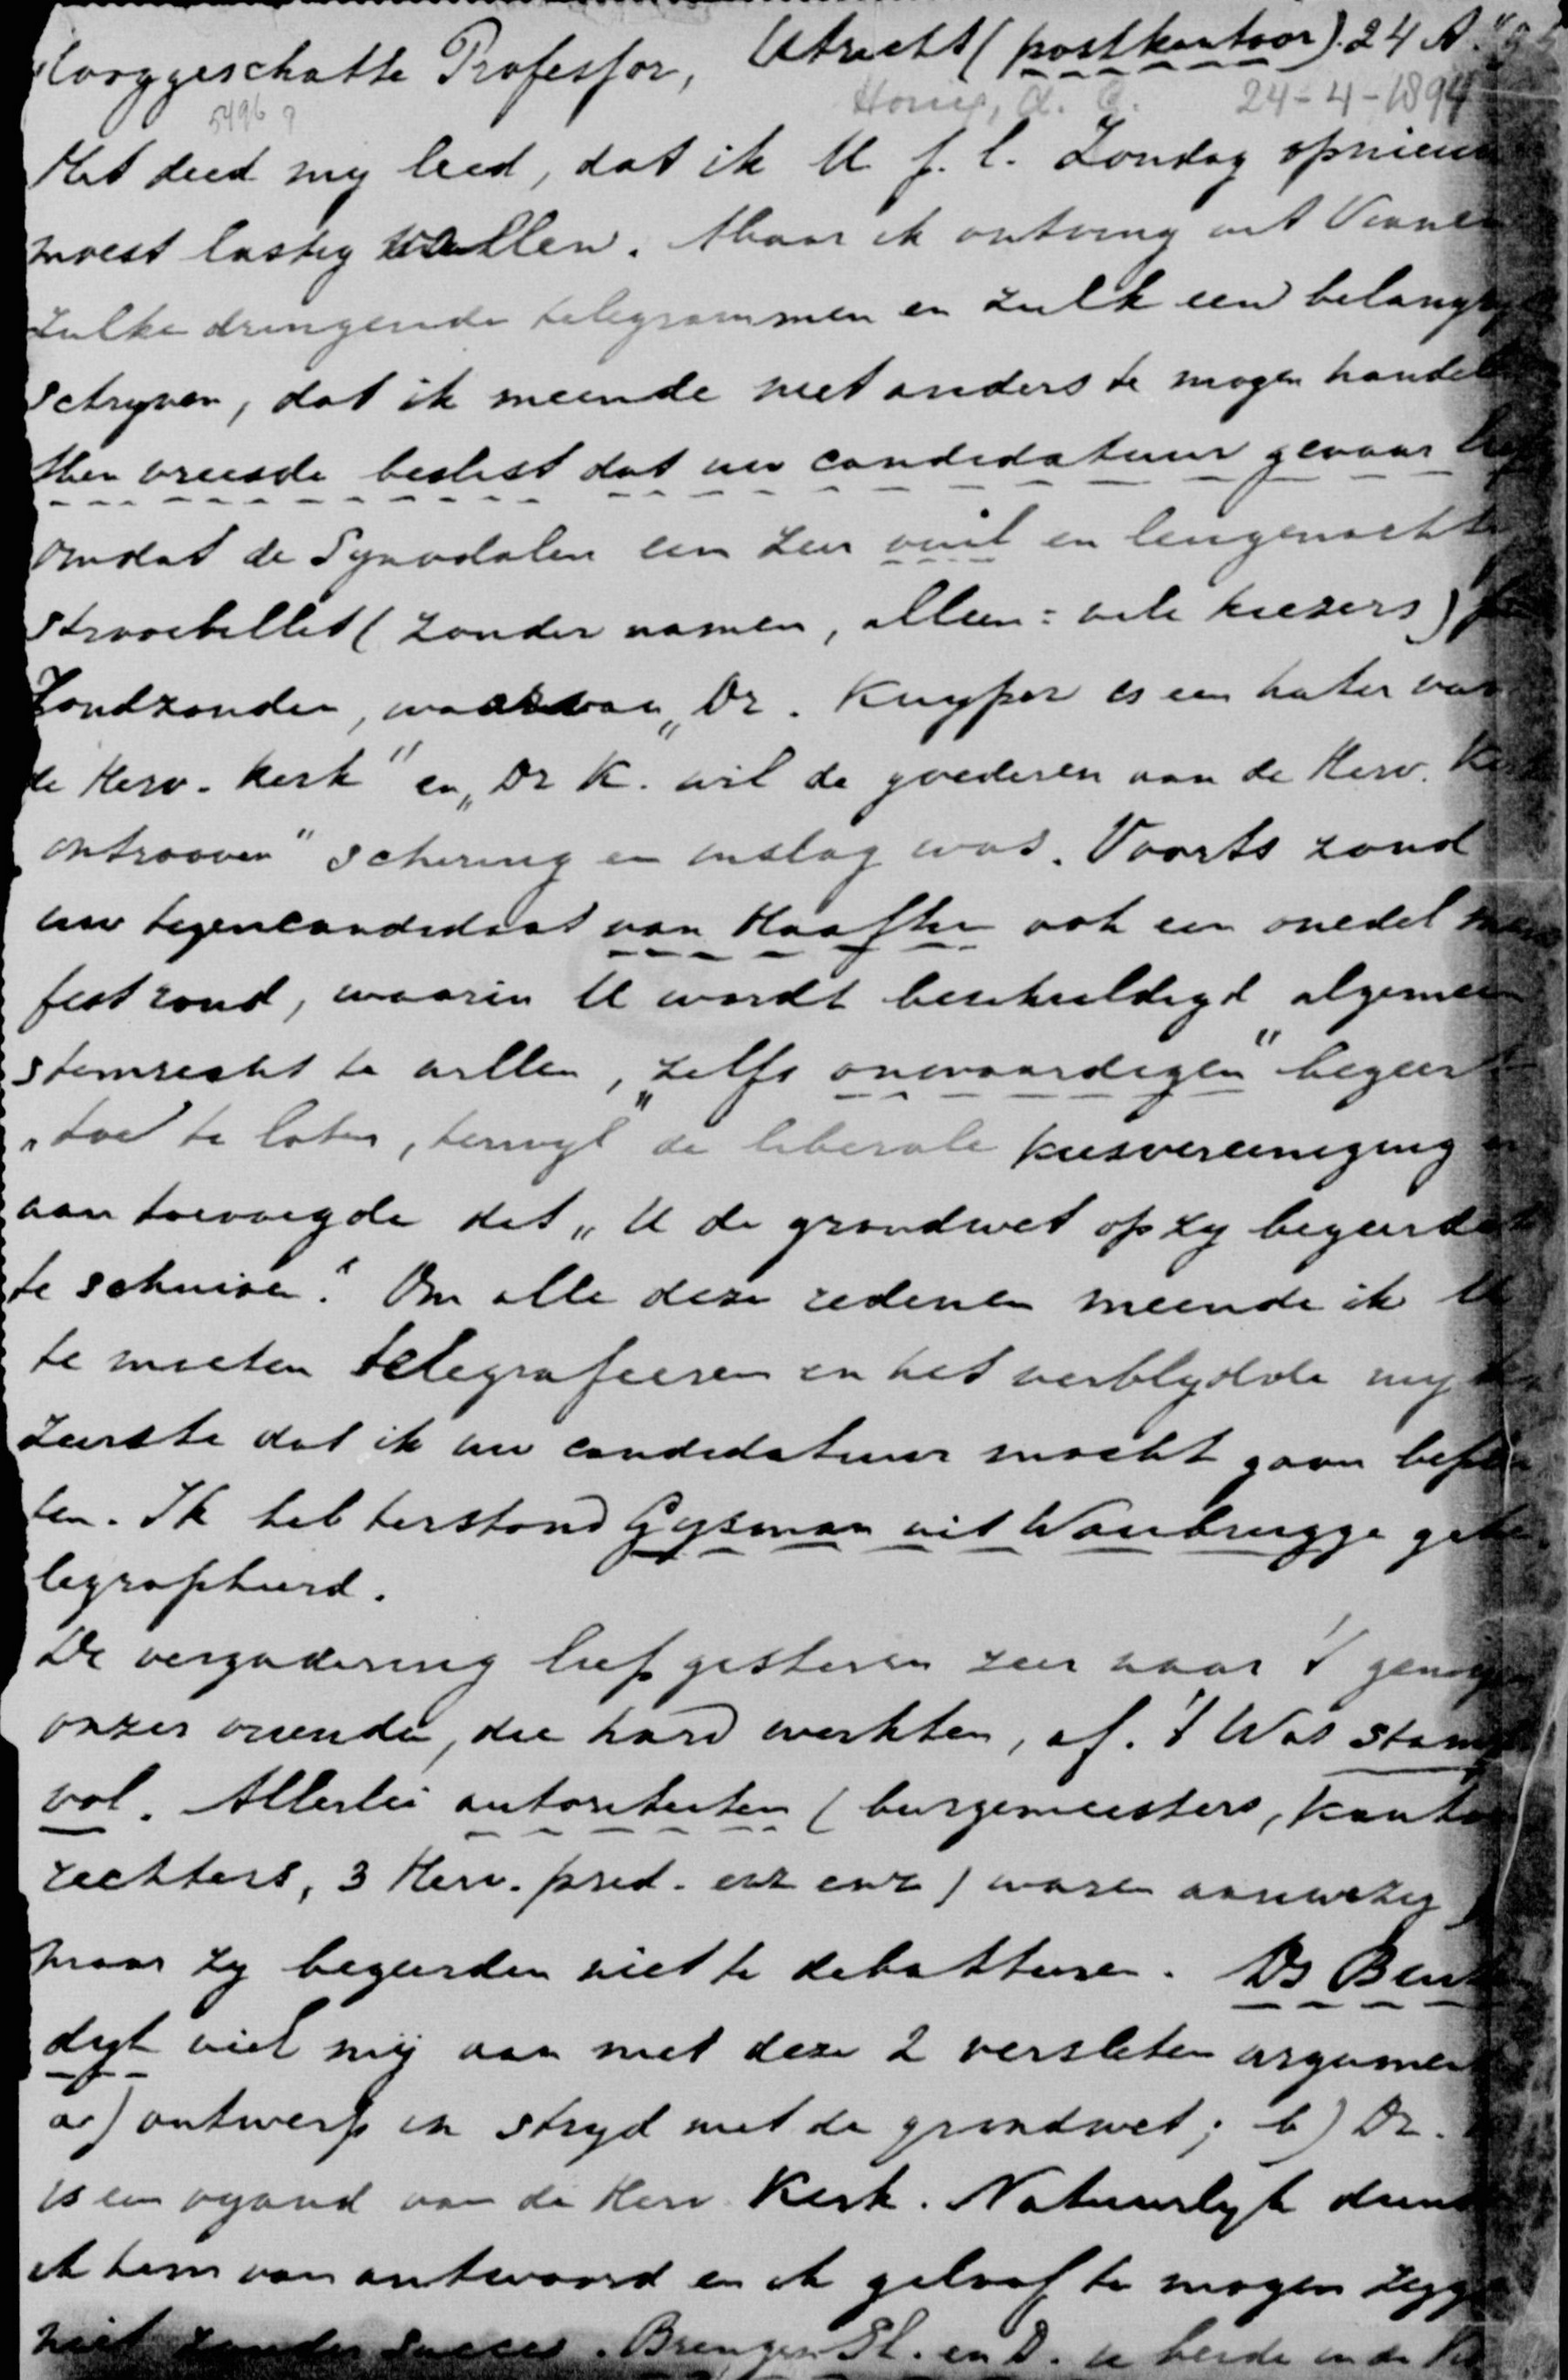 Hooggeschatte Professor, Utrecht (postkantoor). 24 A.
5496? Honig, A. G. 24-4-1894
Het deed my leed, dat ik U j.l. Zondag opnieuw
moest lastig vallen. Maar ik ontving uit Vianen
zulke dringende telegrammen en zulk een belangryk
schryven, dat ik meende niet anders te mogen handelen
Men vreesde beslist dat uw candidatuur gevaar liep
omdat de Synodalen een zeer vuil en leugenachtig
strooibillet (zonder namen, alleen: vele kiezers)
rondzonden, waarvan „Dr. Kuyper is een hater van
de Herv. kerk" en „Dr K. wil de goederen aan de Herv. Kerk
ontrooven" schering en inslag was. Voorts zond
uw tegencandidaat van Haaften ook een onedel mani
fest rond, waarin U wordt beschuldigd algemeen
stemrecht te willen, „zelfs onwaardigen" begeert
„toe te laten, terwyl" de liberale kiesvereeniging er
aan toevoegde dat „U de grondwet op zy begeerdet
te schuiven." Om alle deze redenen meende ik U
te moeten telegrafeeren en het verblydde my ten
zeerste dat ik uw candidatuur mocht gaan beplei
ten. Ik heb terstond Gysman uit Woubrugge gete
legrapheerd.
De vergadering liep gisteren zeer naar 't genoegen
onzer vrienden, die hard werkten, af. 't Was stamp
vol. Allerlei autoriteiten (burgemeesters, kanton
rechters, 3 Herv. pred. enz enz) waren aanwezig
maar zy begeerden niet te debatteeren. Ds
dyk viel mij aan met deze 2 versleten argumenten
a) ontwerp in stryd met de grondwet; b) Dr.
is een vyand van de Herv. Kerk. Natuurlyk diende
ik hem van antwoord en ik geloof te mogen zeggen
niet zonder succes. Brengen Sl. en D. U beide in de